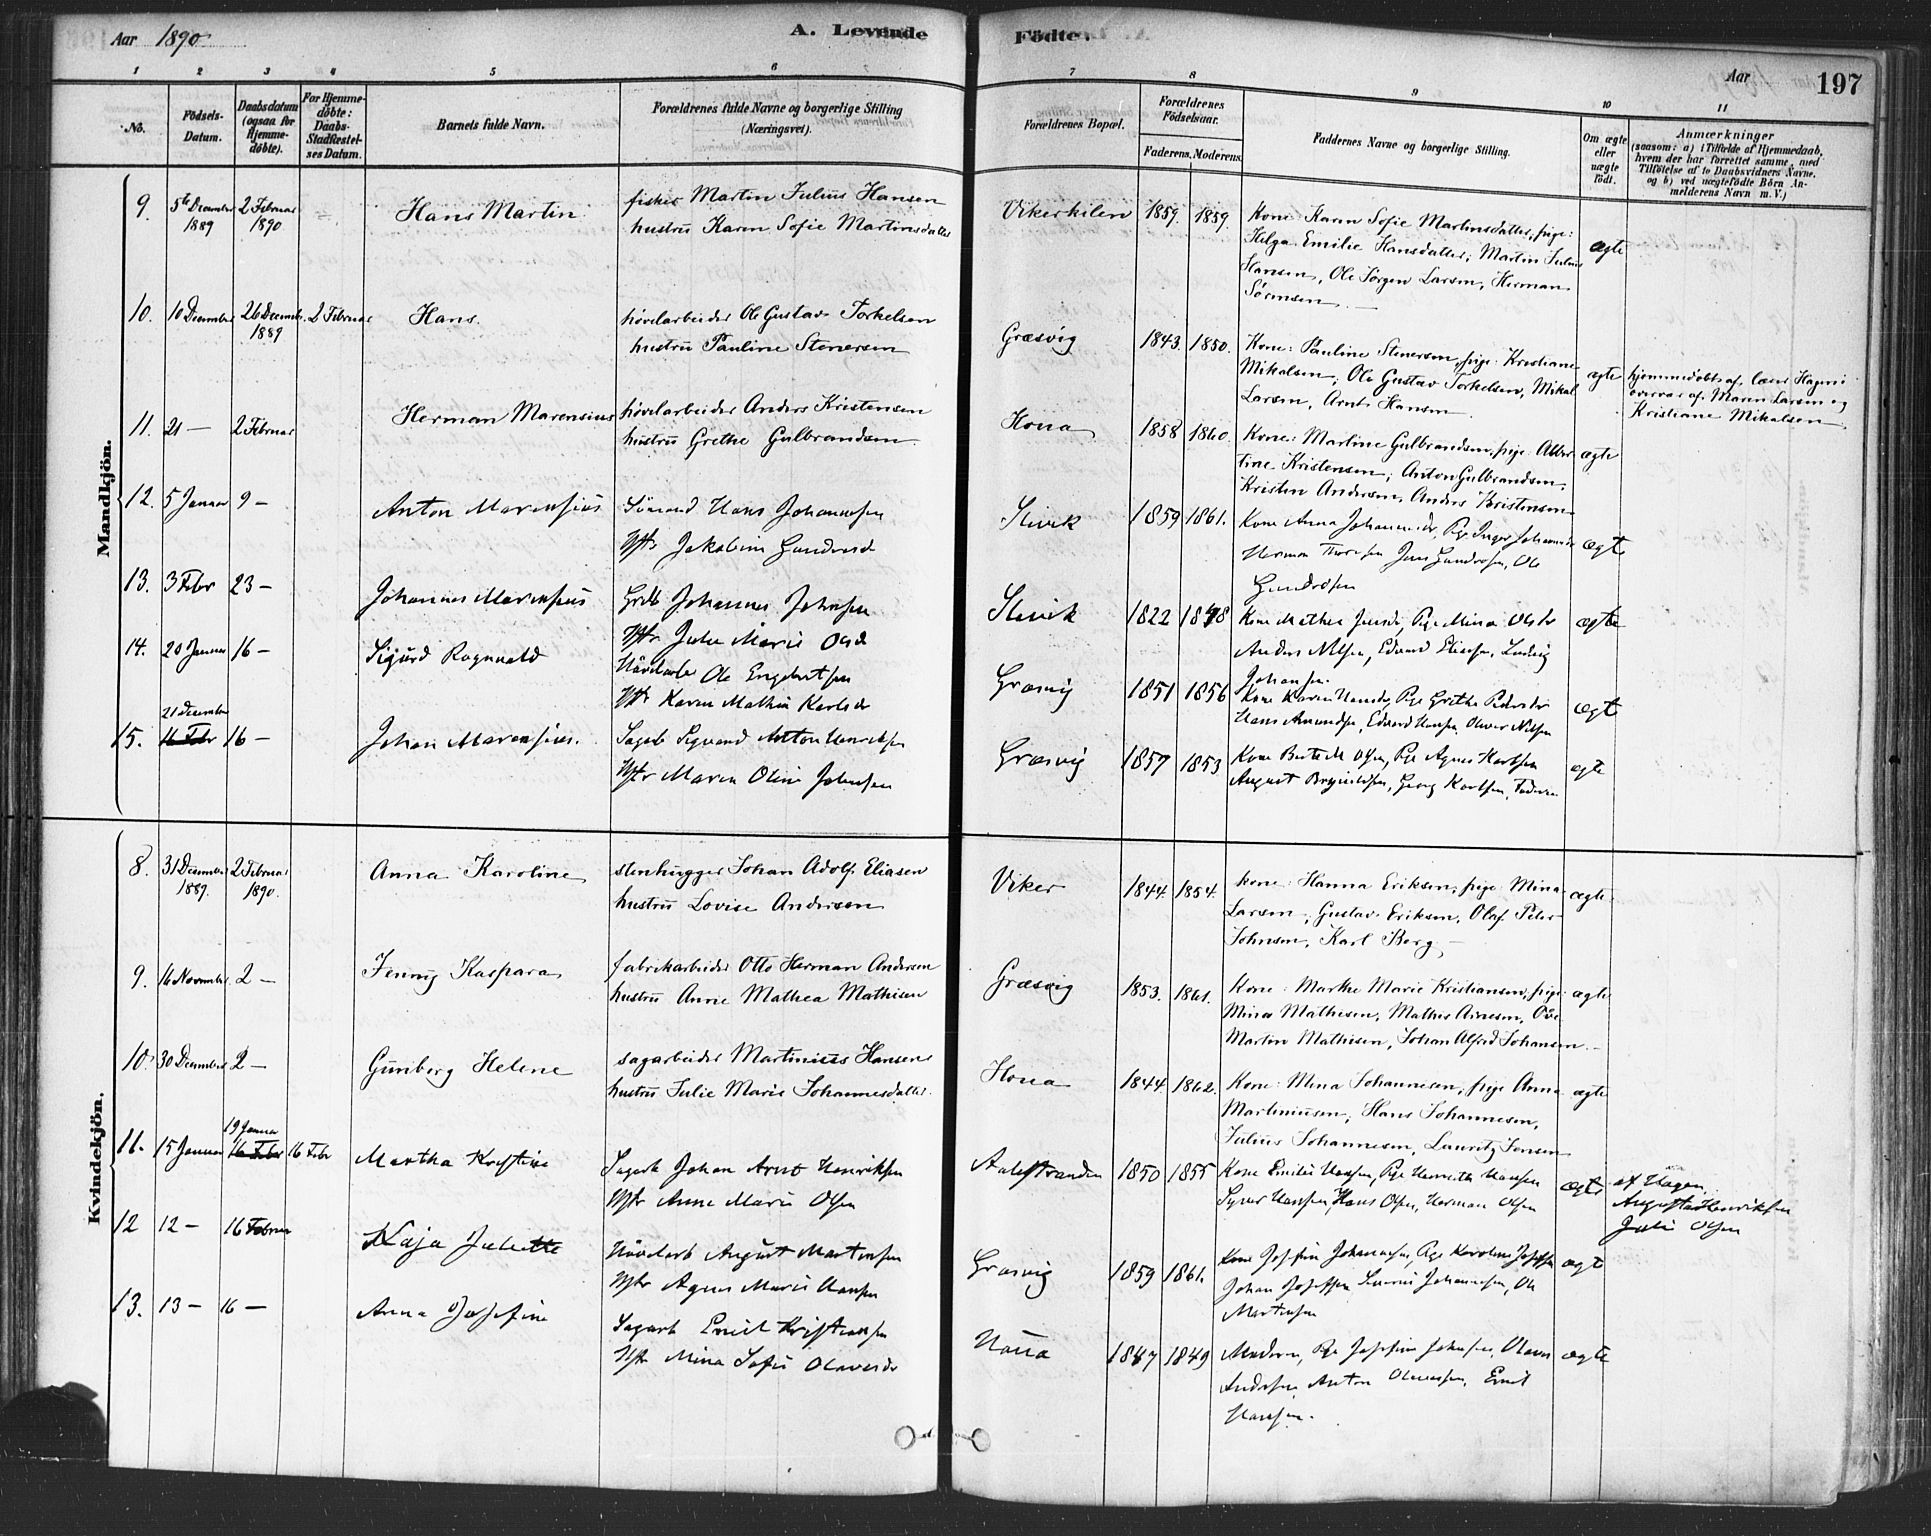 Aar 1890.
A. Levende
Födte.
Aar
197
1 2 3 4 5 6 7 8 9 10 11
No.
Födsels-
Datum.
Daabsdatum
(ogsaa for
Hjemme-
døbte).
For Hjemme-
döbte:
Daabs-
Stadfæstel-
ses Datum.
Barnets fulde Navn.
Forældrenes fulde Navne og borgerlige Stilling
(Næringsvei).
Forældrenes Bopæl.
Forældrenes
Födselsaar.
Faderens. Moderens.
Faddernes Navne og borgerlige Stilling.
Om ægte
eller
uægte
født.
Anmærkninger
(saasom: a) i Tilfælde af Hjemmedaab,
hvem der har forrettet samme, med
Tilføielse af to Daabsvidners Navne.
og b) ved uægtefödte Börn An-
melderens Navn m.V.)
Mandkjön.
9. 5te December 2 Februar Hans Martin fisker Martin Julius Hansen Vikerkilen 1859. 1859. Kone: Karen Sofie Martinsdatter, pige:
1889 1890 hustru Karen Sofie Martinsdatter Helga Emilie Hansdatter; Martin Julius ægte
Hansen, Ole Jørgen Larsen, Herman
Sörensen
10. 10 December 26 December 2 Februar Hans. høvelarbeider Ole Gustav Torkelsen Græsvig 1843. 1850. Kone: Pauline Stenersen, pige: Kristiane
1889 hustru Pauline Stenersen Mikalsen; Ole Gustav Torkelsen, Mikal ægte hjemmedøbt af Hagen
Larsen, Arnt Hansen overvær af Maren Larsen og
Kristiane Mikalsen
11. 21 — 2 Februar Herman Marensius høvelarbeider Anders Kristensen Houa 1858 1860. Kone: Martine Gulbrandsen, pige: Alber
hustru Grethe Gulbrandsen tine Kristensen; Anton Gulbrandsen, ægte
Kristen Andersen, Anders Kristensen
12. 5 Januar 9 — Anton Marensius Sömand Hans Johannesen Slevik 1859 1861. Kone Anna Pige Inger
Hstr Jakobine Herman Jens Ole ægte
13. 3 Febr 23 — Johannes Marensius Johannes Johnsen Slevik 1822 1848 Kone Mathea Pige Mina ægte
Hstr Julie Marie Olsd Anders Nilsen, Edvard Eliasen, Ludvig
Johansen.
14. 20 Januar 16 — Sigurd Ragnvald Ole Engebretsen Græsvig 1851 1856 Kone Karen Pige Grethe ægte
Hstr Karen Mathia Karlsd Hans Amundsen, Edvard Hansen, Oliver Nilsen
21 December
15. 16 Febr 16 — Johan Marensius. Sagarb Sigvand Anton Henriksen Græsvig 1857 1853 Kone Berte M Olsen, Pige Agnes Karlsen ægte
Hstr Maren Oline Johnsen August Georg Karlsen, Faderen
Kvindekjön.
8. 31 December 2 Februar Anna Karoline stenhugger Johan Adolf Eliasen Viker 1844. 1854. kone: Hanna Eriksen, pige: Mina ægte
1889. 1890. hustru Lovise Andersen Larsen, Gustav Eriksen, Olaf Peter
Johnsen, Karl Berg,
9. 16 November 2 — Jenny Kaspara fabrikarbeider Otto Herman Andersen Græsvig 1853. 1861. Kone: Marthe Marie Kristiansen, pige: ægte
hustru Anne Mathea Mathisen Mina Mathisen, Mathis Arnesen, Ove
Martin Mathisen, Johan Alfred Johansen.
10. 30 December 2 — Gunborg Helene sagarbeider Martinius Hansen Houa 1844. 1862. Kone: Mina Johannesen, pige Anna ægte
hustru Julie Marie Johannesdatter. Martiniusen, Hans Johannesen,
Julius Johannesen, Lauritz Jensen
19 Januar
11. 15 Januar 16 Febr 16 Febr Martha Kristine Sagarb Johan Arnt Henriksen Aalestranden 1850 1855 Kone Emilie Hansen, Pige Hansen ægte af Hagen
Hstr Anne Marie Olsen Hansen, Hans Olsen, Herman Olsen Augusta Henriksen
Julie Olsen
12 12 — 16 Februar Kaja Juliette Hövlarb August Martinsen Græsvig 1859 1861. Kone Josefine Johannesen, Pige Karoline Josefsen ægte
Hstr Agnes Marie Hansen Johan Josefsen Johannesen, Ole
Martinsen
13. 13 — 16 — Anna Josefine Sagarb Emil Kristiansen Houa 1847 1849 Moderen, Pige Josefine Johnsen, Olaves ægte
Hstr Mina Sofie Olavesdr Andersen, Anton Olavesen, Emil
Hansen.